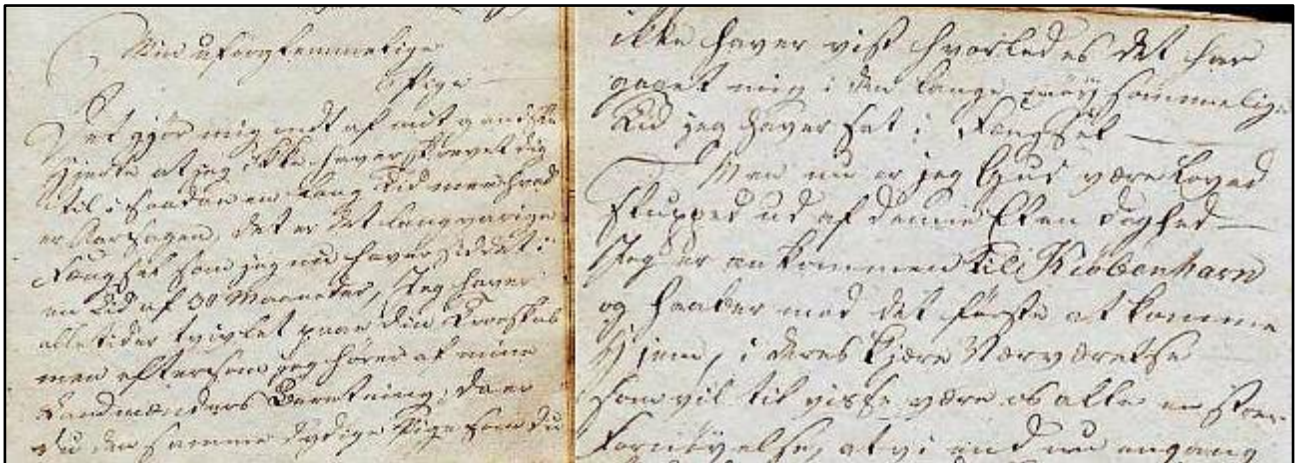 Min uforglemmelige
Pige
Det gjør mig ondt af mit gandske
Hjerte at jeg ikke haver skrevet dig
til i saadan en lang Tid men hvad
er Aarsagen, det er det langvarige
Fængsel som jeg nu haver siddet i
en Tid af 30 Maaneder, Jeg haver
alle tider tvivlet paa din Troeskab
men eftersom jeg hører af mine
Landmænders Beretning, da er
du den samme dydige Pige som du
ikke haver vist hvorledes det har
gaaet mig i den lange møysommelige
Tid jeg haver sat i Fængsel
Men nu er jeg Gud være Loved
slupped ud af denne
Jeg er ankommen til Kiøbenhavn
og haaber med det første at komme
Hjem, i deres kjære Nærværelse
som vil til visse være os alle en stor
Fornøyelse, at vi endnu engang